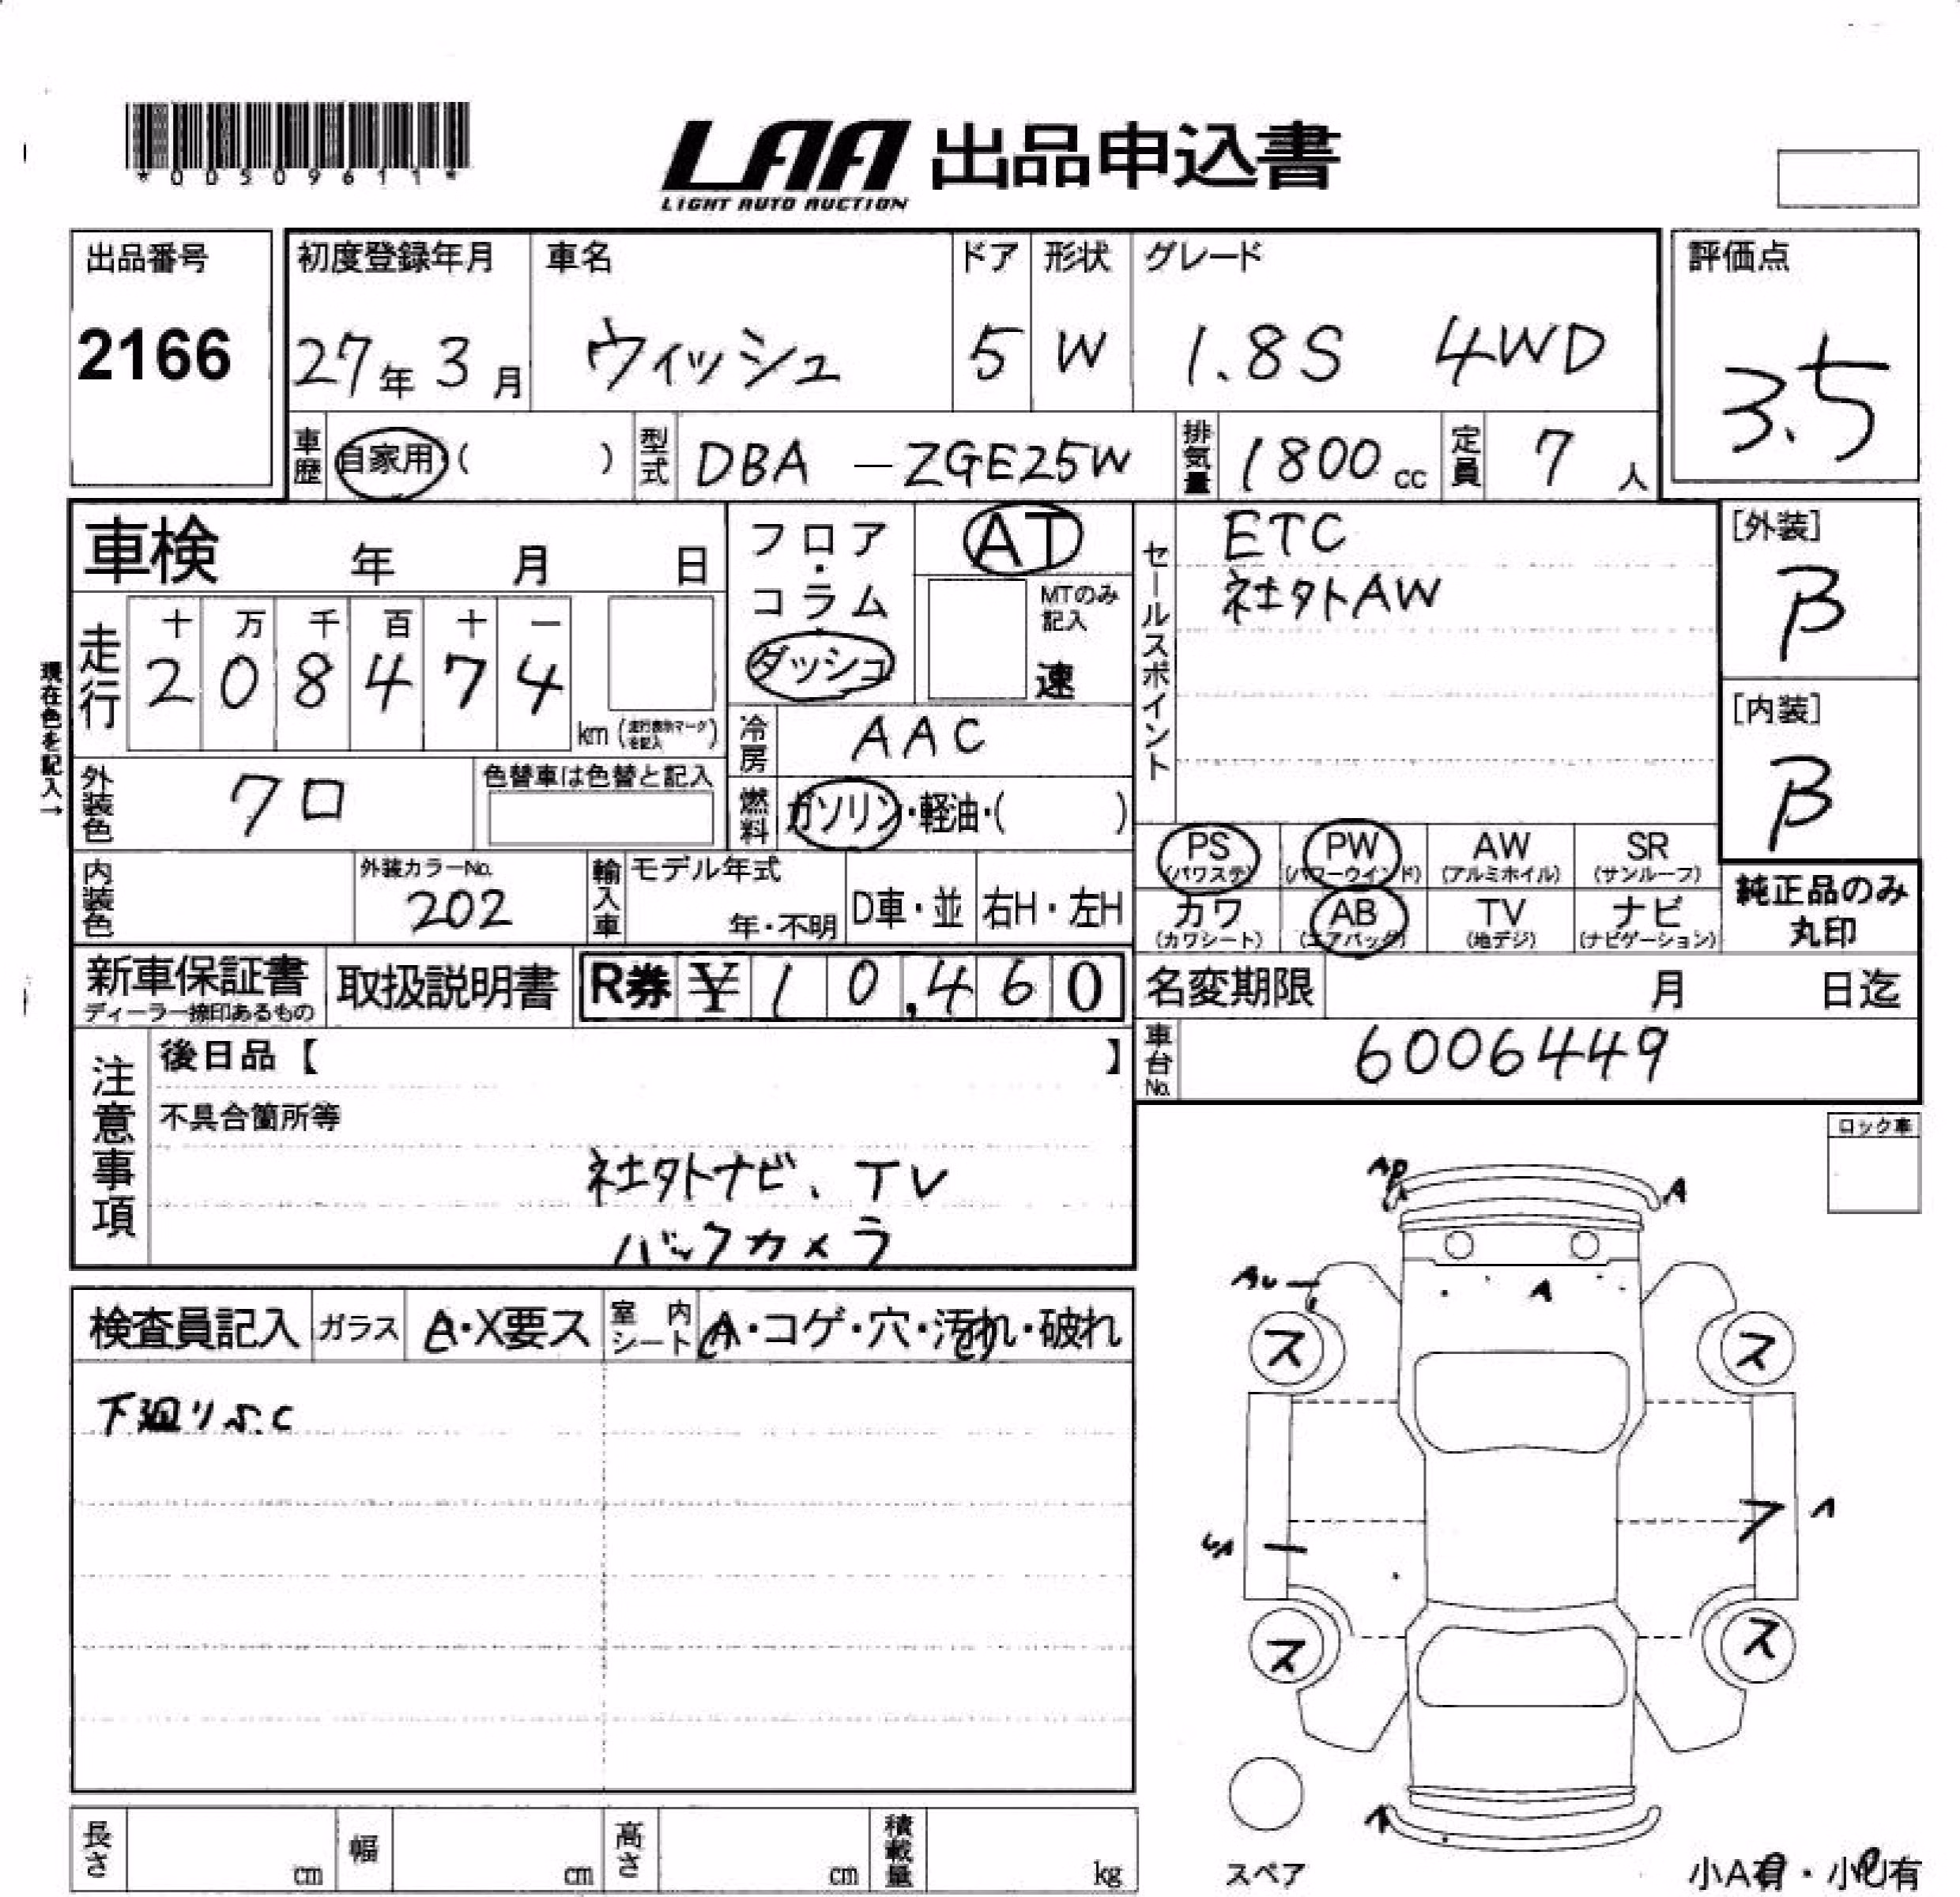 *00509611*
LAA 出品申込書
LIGHT AUTO AUCTION
出品番号
2166
初度登録年月
27年 3月
車名
ウィッシュ
ドア
5
形状
W
グレード
1.8S 4WD
評価点
3.5
車歴 自家用・( )
型式 DBA - ZGE25W
排気量 1800 cc
定員 7 人
車検 年 月 日
走行
十 万 千 百 十 一
2 0 8 4 7 4
km (走行表示マークを記入)
フロア・コラム
ダッシュ
AT
MTのみ記入
速
冷房 AAC
燃料 ガソリン・軽油・( )
セールスポイント
ETC
社外AW
[外装]
B
[内装]
B
現在色を記入→
外装色 クロ
色替車は色替と記入
内装色
外装カラーNo.
202
輸入車
モデル年式
年・不明
D車・並
右H・左H
PS (パワステ)
PW (パワーウインド)
AW (アルミホイル)
SR (サンルーフ)
カワ (カワシート)
AB (エアバッグ)
TV (地デジ)
ナビ (ナビゲーション)
純正品のみ
丸印
新車保証書
ディーラー捺印あるもの
取扱説明書
R券 ¥10,460
名変期限 月 日迄
車台No. 6006449
注意事項
後日品【 】
不具合箇所等
社外ナビ、TV
バックカメラ
ロック車
検査員記入
ガラス
A・X要ス
室内シート
A・コゲ・穴・汚れ・破れ
下廻りS.C
AP
A
AU
A
ス
ス
A
ス
ス
A
スペア
小A有・小U有
長さ cm
幅 cm
高さ cm
積載量 kg